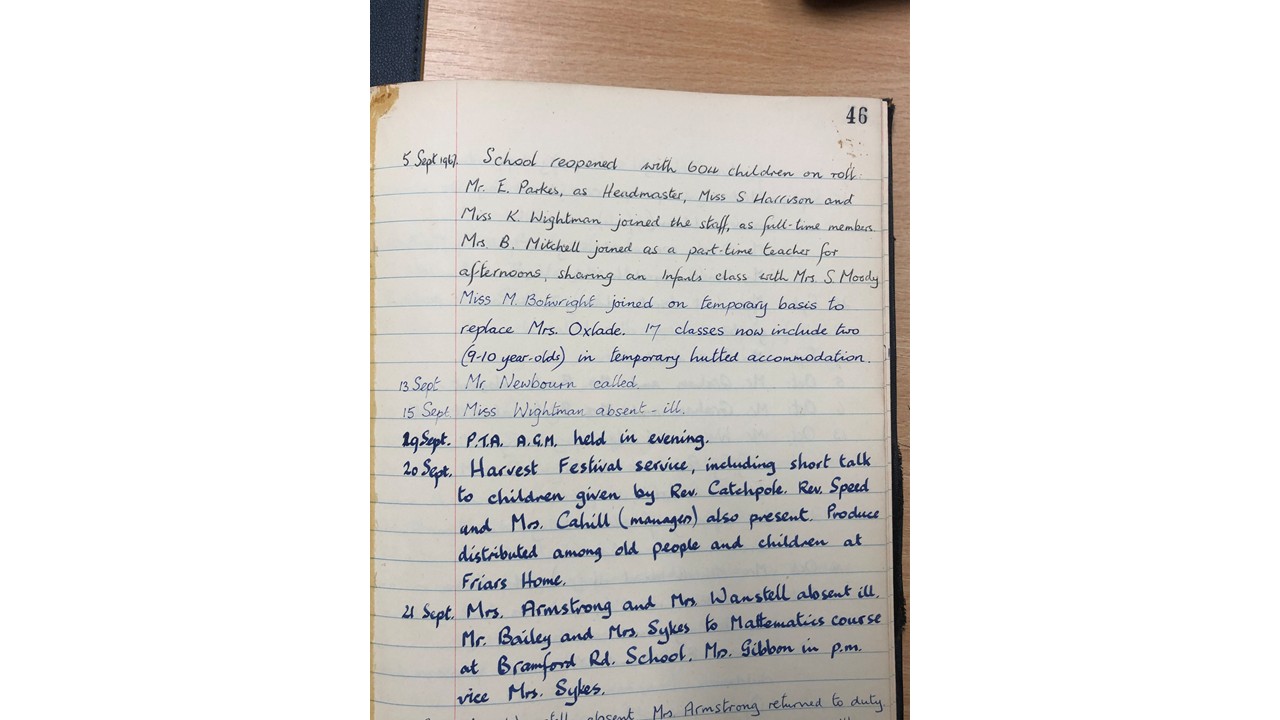 46
5 Sept 1967. School reopened with 604 children on roll
Mr. E. Parkes, as Headmaster, Miss S Harrison and
Miss K. Wightman joined the staff, as full-time members
Mrs. B. Mitchell joined as a part-time teacher for
afternoons, sharing an Infants class with Mrs S. Moody
Miss M. Botwright joined on temporary basis to
replace Mrs. Oxlade. 17 classes now include two
(9-10 year-olds) in temporary hutted accommodation.
13 Sept Mr. Newbourn called.
15 Sept. Miss Wightman absent - ill.
19 Sept. P.T.A. A.G.M. held in evening.
20 Sept. Harvest Festival service, including short talk
to children given by Rev. Catchpole. Rev. Speed
and Mrs. Cahill (manager) also present. Produce
distributed among old people and children at
Friars Home.
21 Sept. Mrs. Armstrong and Mrs. Wanstell absent ill.
Mr. Bailey and Mrs. Sykes to Mathematics course
at Bramford Rd. School. Mrs. Gibbon in p.m.
vice Mrs. Sykes.
absent Mrs Armstrong returned to duty.